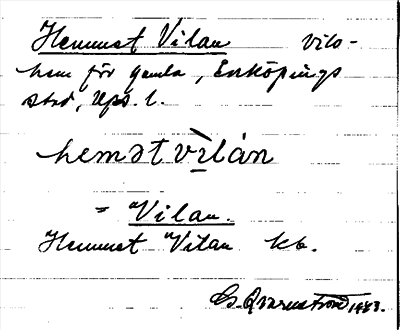 Hemmet Vilan vilo-
hem för gamla, Enköpings
stad, Upps. l.
hemət vìlan
= Vilan.
Hemmet Vilan kb.
G. Qvarnström 1983.